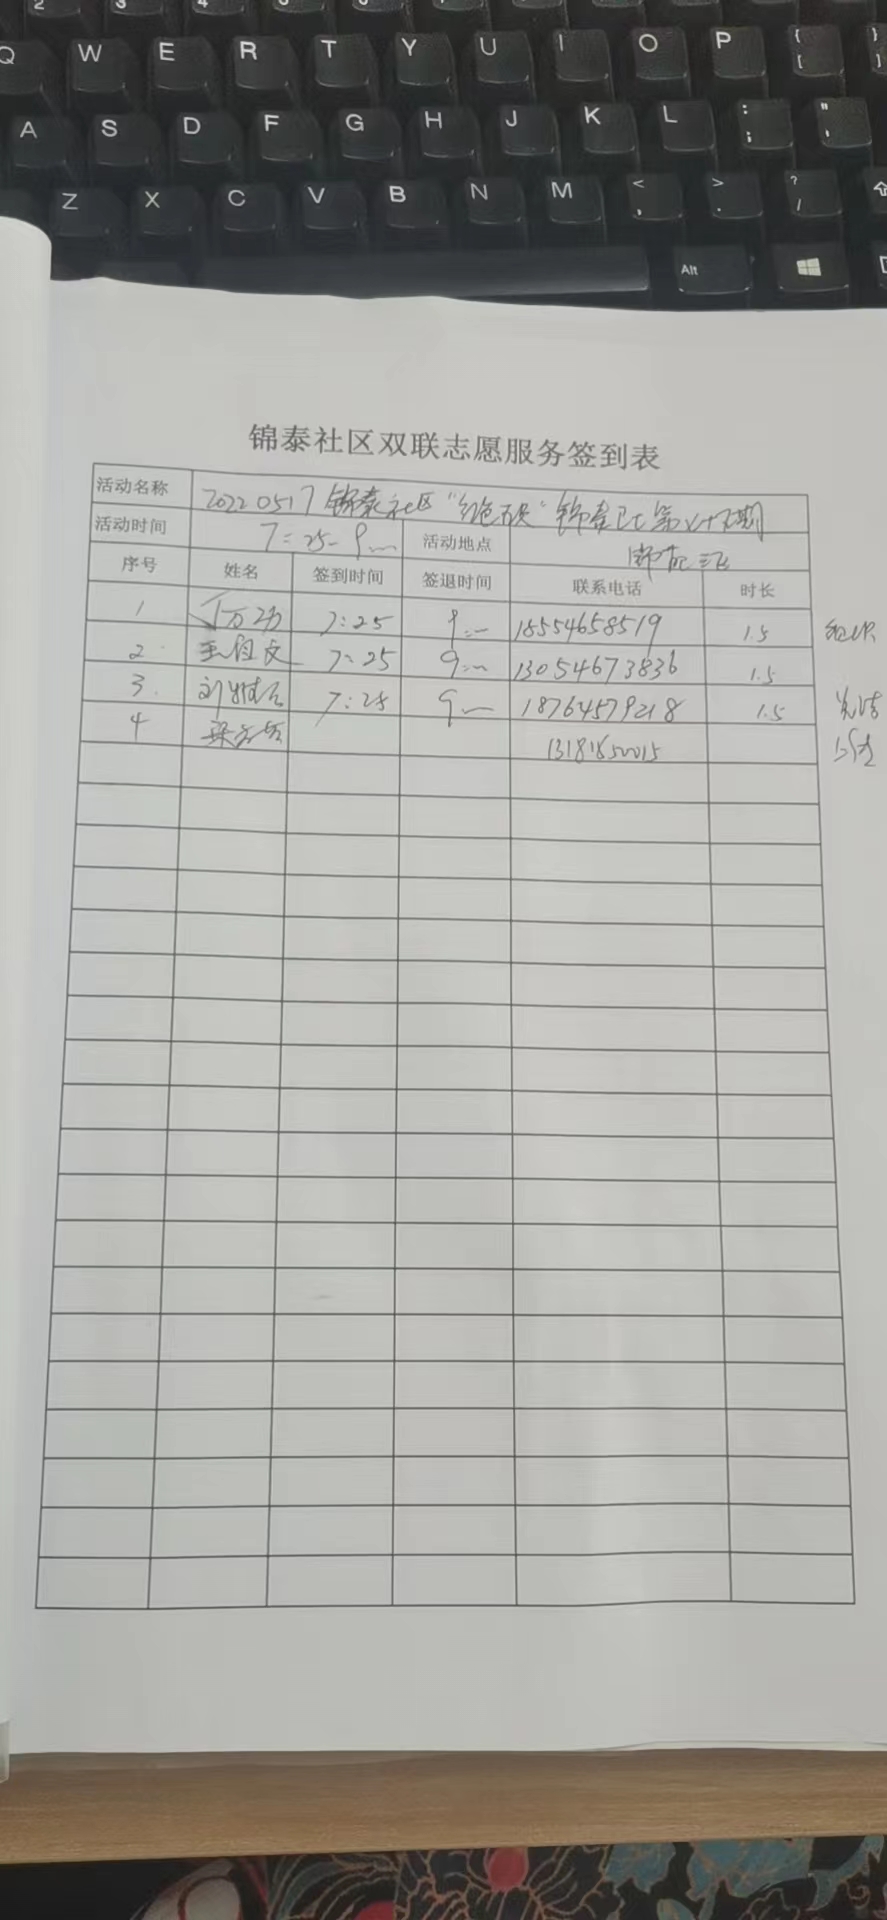 2 3 4
Q W E R T Y U I O P { [ } ]
A S D F G H J K L : ; " '
Z X C V B N M < , > . ? /
Alt
锦泰社区双联志愿服务签到表
活动名称 20220517锦泰社区"红色 "锦泰卫士第 十五期
活动时间 7:25-9:00 活动地点 锦苑三区
序号 姓名 签到时间 签退时间 联系电话 时长
1 7:25 9:00 18554658519 1.5 组织
2 王祖文 7:25 9:00 13054673836 1.5
3. 刘 7:25 9:00 18764579218 1.5
4 13181850015